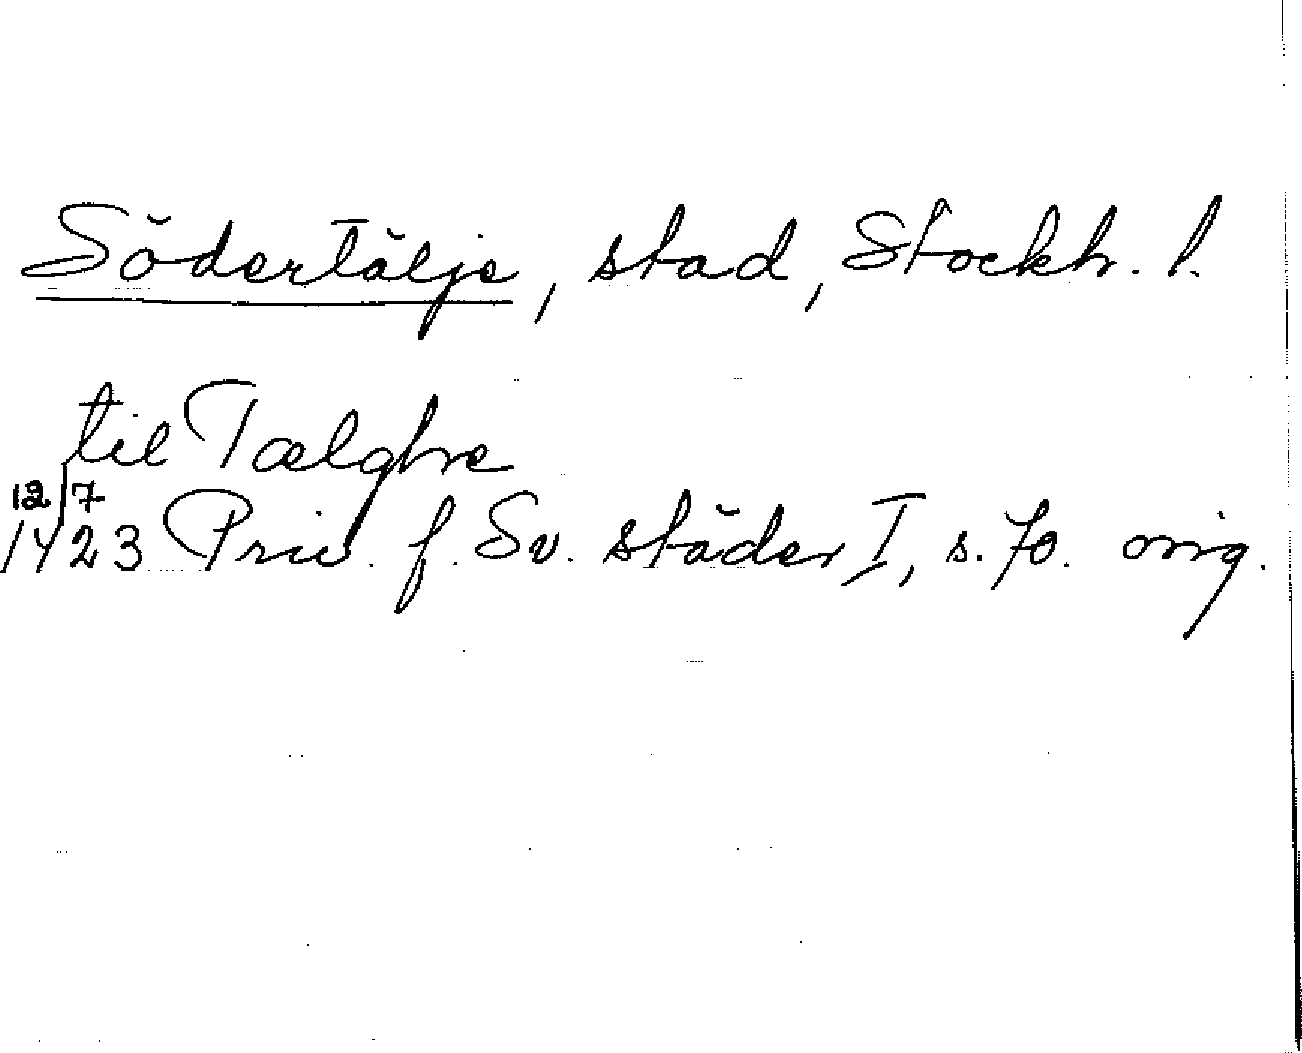 Södertälje, stad, Stockh. l.
til Tælghe
12/7
1423 Priv. f. Sv. städer I, s. 70. orig.